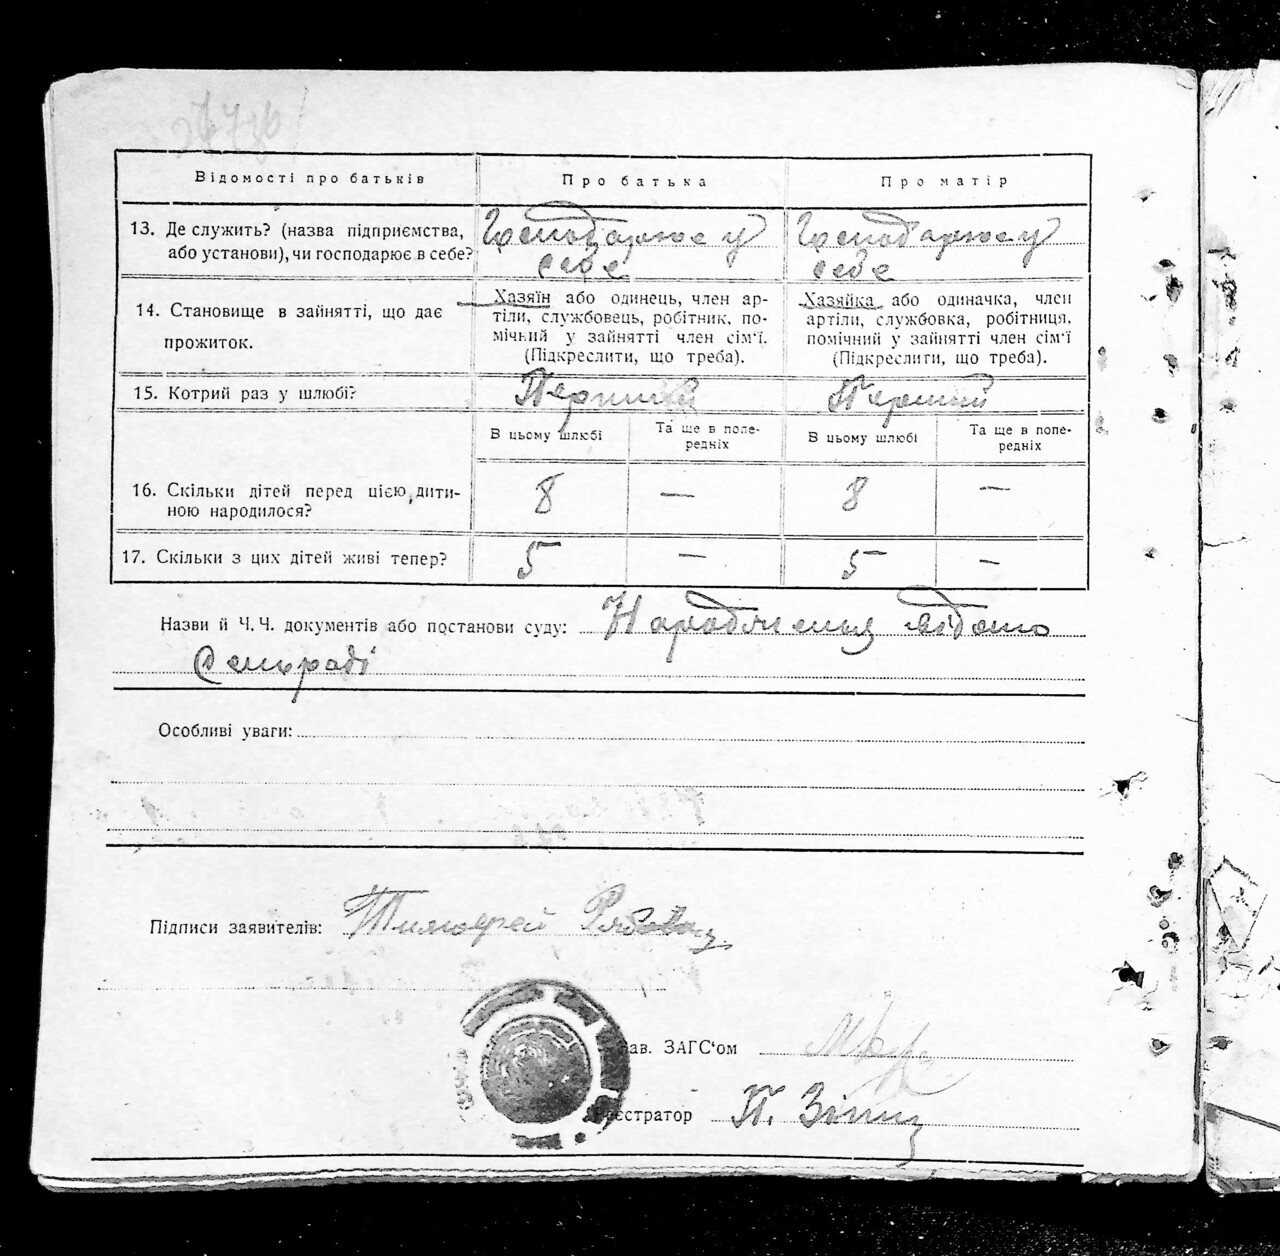 Відомості про батьків Про батька Про матір
13. Де служить? (назва підприємства, або установи), чи господарює в себе?
Господарює у
себе
Господарює у
себе
14. Становище в зайнятті, що дає
прожиток.
Хазяїн або одинець, член ар-
тіли, службовець, робітник, по-
мічний у зайнятті член сім'ї.
(Підкреслити, що треба).
Хазяйка або одиначка, член
артіли, службовка, робітниця,
помічний у зайнятті член сім'ї
(Підкреслити, що треба).
15. Котрий раз у шлюбі? Перший Перший
В цьому шлюбі
Та ще в попе-
редніх
В цьому шлюбі
Та ще в попе-
редніх
16. Скільки дітей перед цією дити-
ною народилося?
8 — 8 —
17. Скільки з цих дітей живі тепер? 5 — 5 —
Назви й Ч.Ч. документів або постанови суду: Народження відомо
Сельраді
Особливі уваги:
Підписи заявителів: Тимофей
Зав. ЗАГС'ом
Реєстратор П.